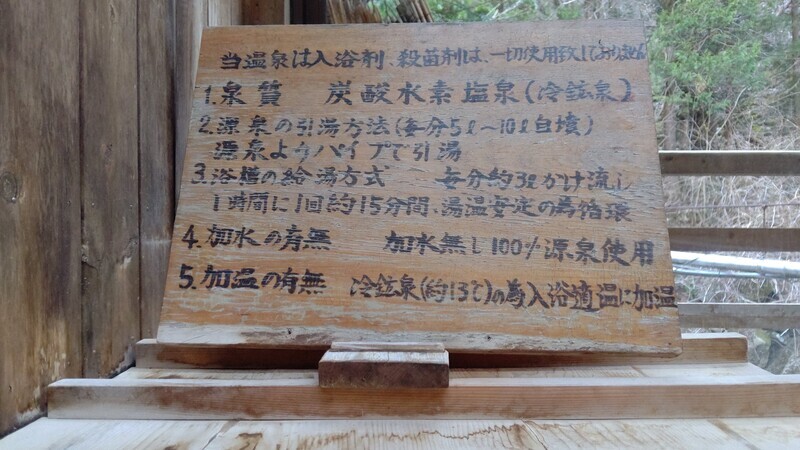 当温泉は入浴剤、殺菌剤は、一切使用致しておりません
1.泉質 炭酸水素塩泉(冷鉱泉)
2.源泉の引湯方法(毎分5ℓ～10ℓ自墳)
源泉よりパイプで引湯
3.浴槽の給湯方式 毎分約3ℓかけ流し
1時間に1回約15分間、湯温安定の為循環
4.加水の有無 加水無し100%源泉使用
5.加温の有無 冷鉱泉(約13℃)の為入浴適温に加温